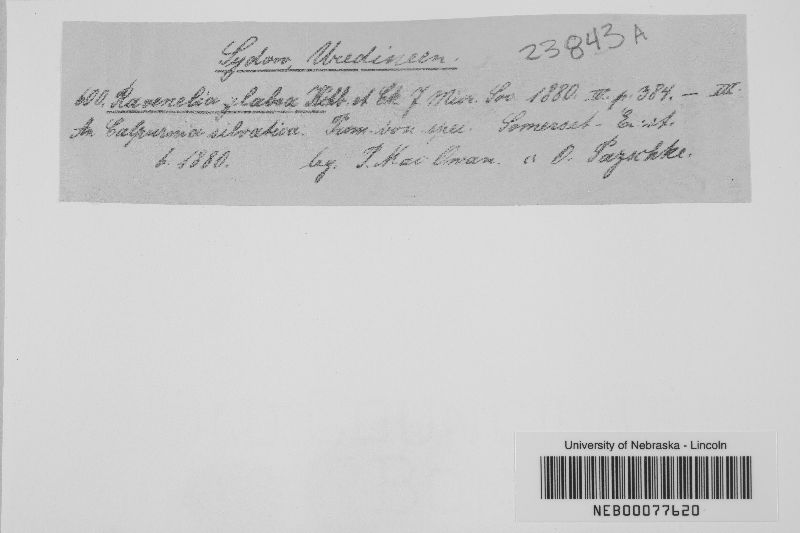 Sydow, Uredineen.
23843A
600. Ravenelia glabra Kalch et Ck J Micr. Soc 1880. II. p. 384. — III.
An Calpurnia silvatica. Somerset-East.
6. 1880. leg. P. Mac Owan. O. Pazschke.
University of Nebraska - Lincoln
NEB00077620